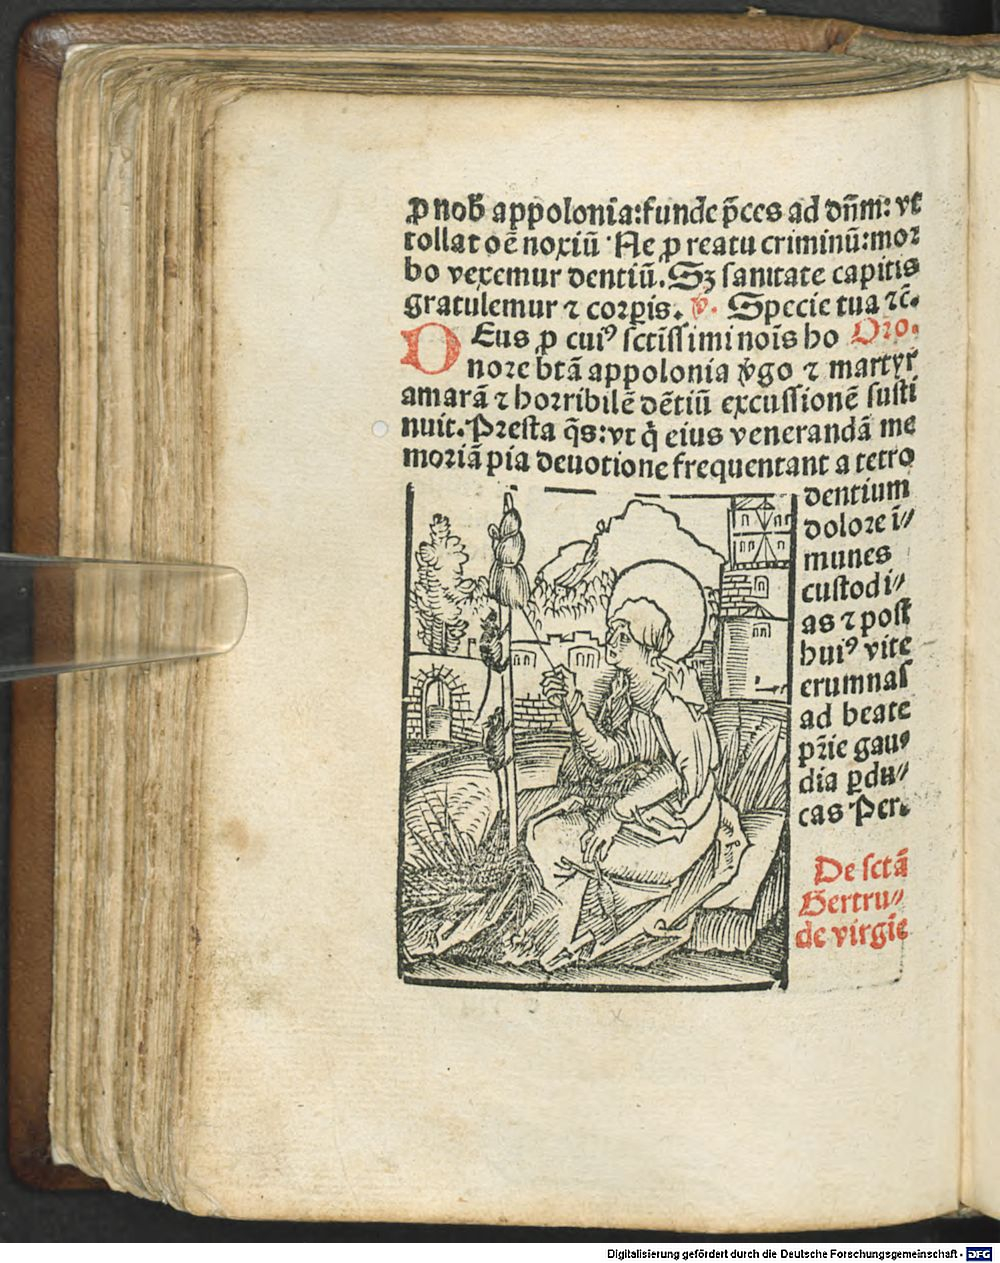 ꝓ nob̄ appolonia: funde p̄ces ad dn̄m: vt
tollat oē noxiū · Ne ꝓ reatu criminū: mor
bo vexemur dentiū. Sꝫ sanitate capitis
gratulemur ⁊ corꝑis. ꝟ. Specie tua ⁊c̄.
DEus ꝓ cuiꝰ sctīssimi nois̄ ho Oro.
nore btā appolonia ꝟgo ⁊ martyr
amarā ⁊ horribilē dētiū excussionē susti
nuit. Presta q̄s: vt q̄ eius venerandā me
moriā pia deuotione frequentant a tetro
dentium
dolore ī⸗
munes
custodi⸗
as ⁊ post
huiꝰ vite
erumnas
ad beate
pr̄ie gau
dia ꝑdu⸗
cas Per.
De sctā
Gertru⸗
de virgīe
Digitalisierung gefördert durch die Deutsche Forschungsgemeinschaft - DFG